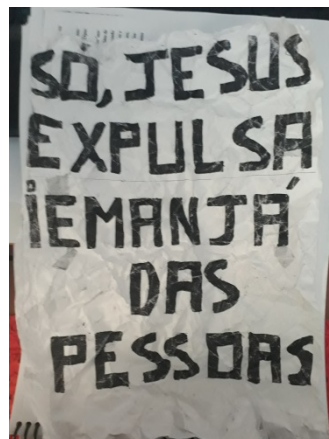 SÓ, JESUS
EXPULSA
iEMANJÁ
DAS
PESSOAS